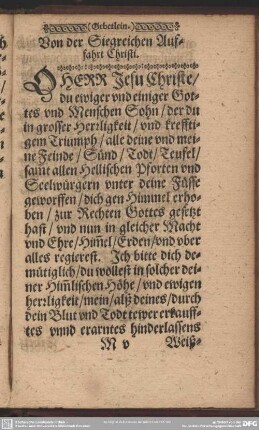 (Gebetlein.)
Von der Siegreichen Auf-
fahrt Christi.
O HERR Jesu Christe/
du ewiger vnd einiger Got-
tes vnd Menschen Sohn/ der du
in grosser Herrligkeit/ vnd kreffti-
gem Triumph/ alle deine vnd mei-
ne Feinde/ Sünd/ Todt/ Teufel/
sampt allen Hellischen Pforten vnd
Seelwürgern vnter deine Füsse
geworffen/ dich gen Himmel erho-
ben/ zur Rechten Gottes gesetzt
hast/ vnd nun in gleicher Macht
vnd Ehre/ Him̃el/ Erden/ vnd vber
alles regierest. Ich bitte dich de-
mütiglich/ du wollest in solcher dei-
ner Him̃lischen Höhe/ vnd ewigen
herrligkeit/ mein/ alß deines/ durch
dein Blut vnd Todt tewer erkauff-
tes vnnd erarntes hinderlassens
M v Weiß-
DFG